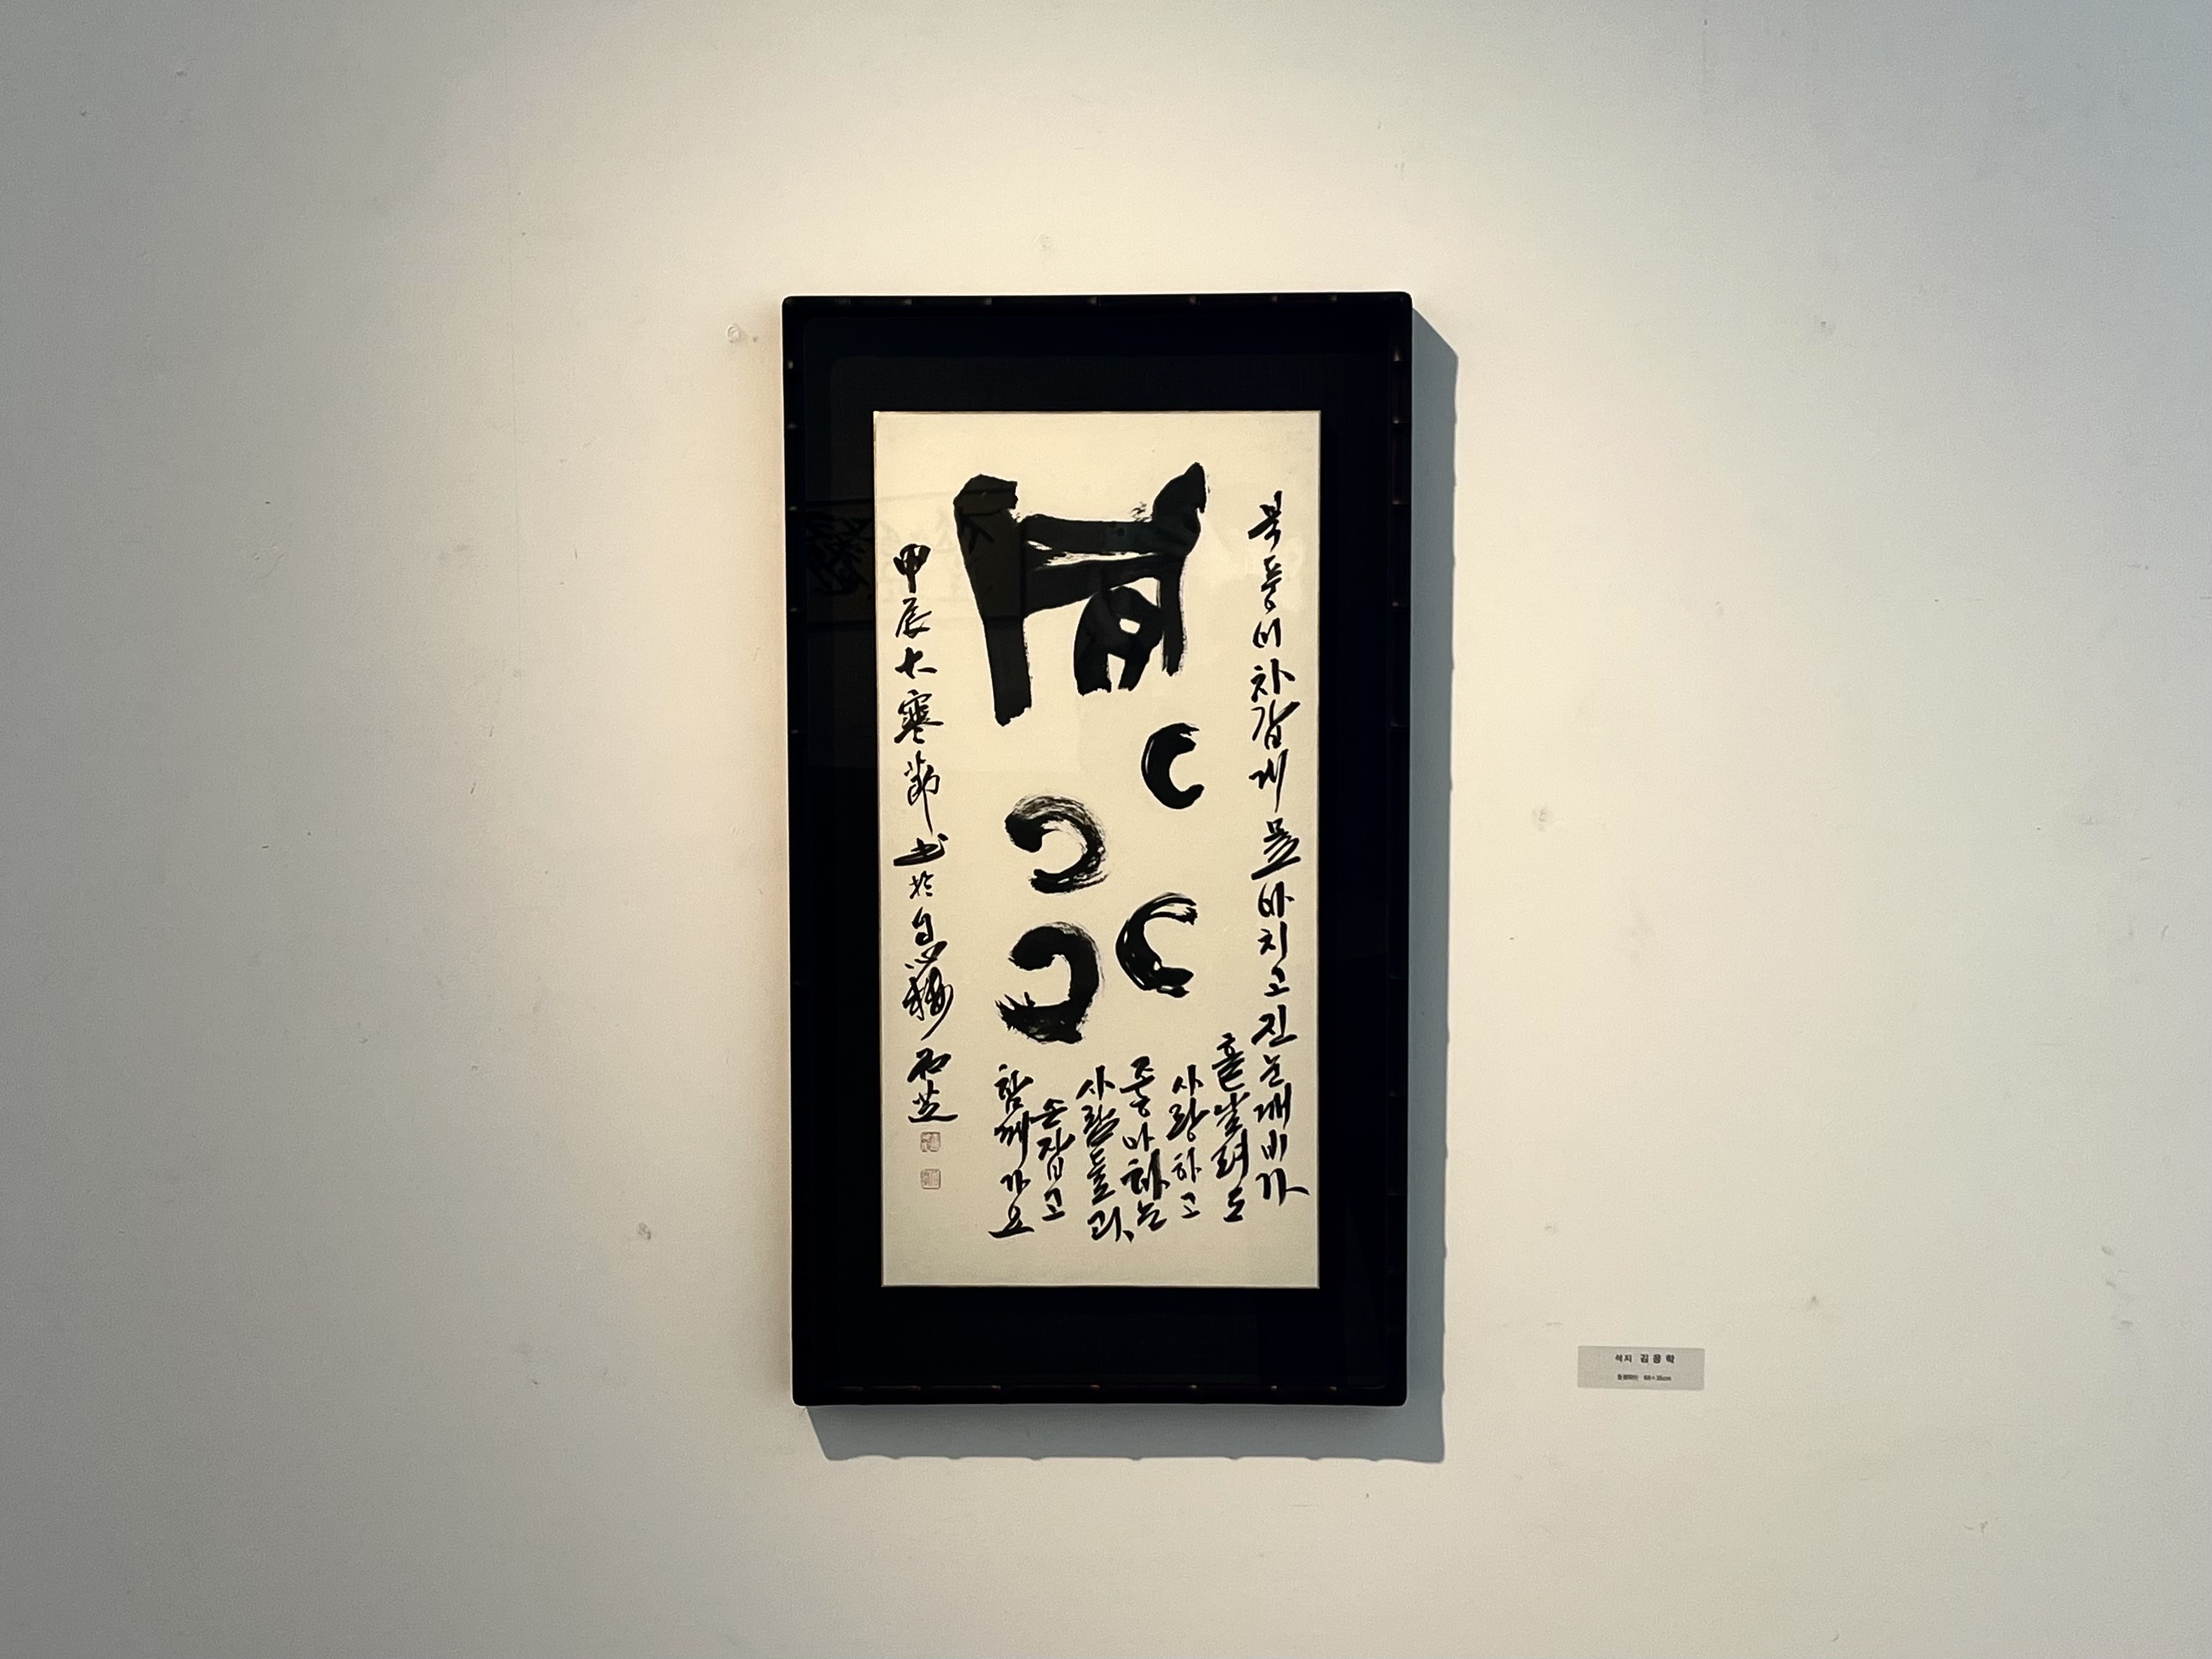 북풍이차갑게몰아치고진눈개비가
흩날려도
사랑하고
좋아하는
사람들과
손잡고
함께가요
甲辰大寒節書於 石芝
석지 김응학
68×35cm